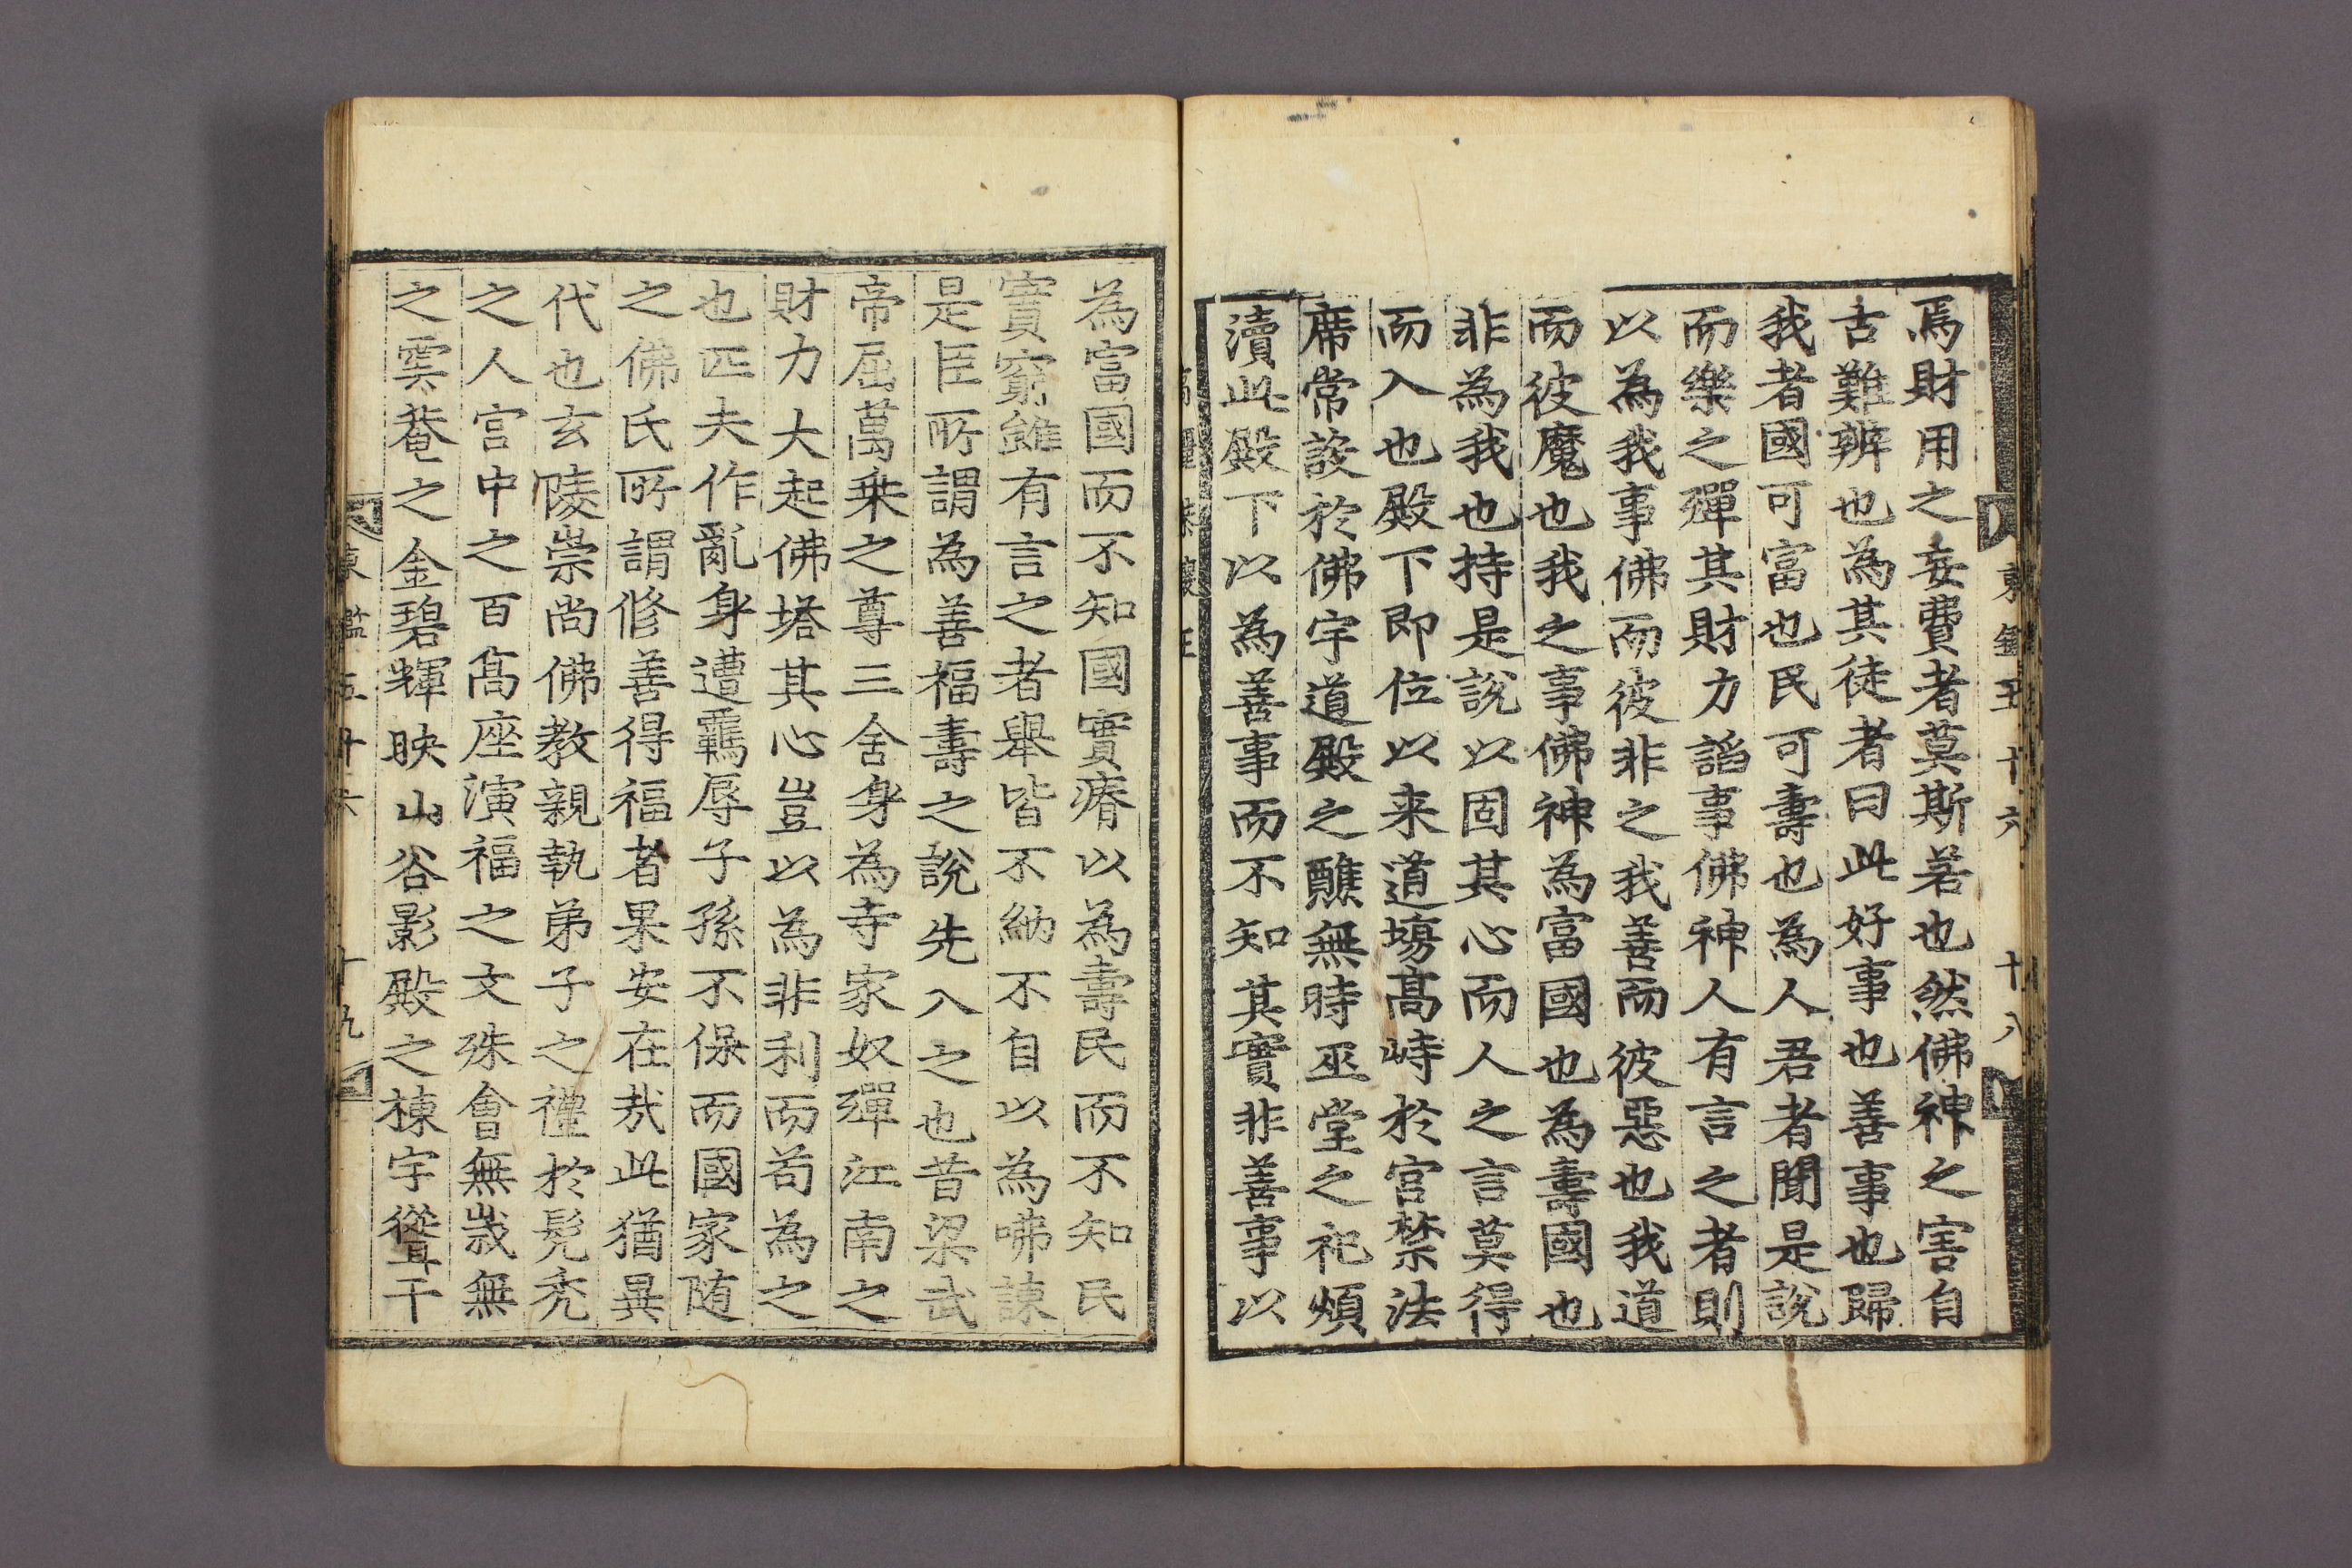 東鑑五十六 十八
焉財用之妄費者莫斯若也然佛神之害自
古難辨也為其徒者曰此好事也善事也歸
我者國可富也民可壽也為人君者聞是說
而樂之殫其財力謟事佛神人有言之者則
以為我事佛而彼非之我善而彼惡也我道
而彼魔也我之事佛神為富國也為壽國也
非為我也持是說以固其心而人之言莫得
而入也殿下即位以来道塲髙峙於宮禁法
席常設於佛宇道殿之醮無時巫堂之祀煩
瀆此殿下以為善事而不知其實非善事以
為富國而不知國實瘠以為壽民而不知民
實窮雖有言之者舉皆不納不自以為咈諫
是臣所謂為善福壽之說先入之也昔梁武
帝屈萬乗之尊三舍身為寺家奴殫江南之
財力大起佛塔其心豈以為非利而苟為之
也匹夫作亂身遭羈辱子孫不保而國家随
之佛氏所謂修善得福者果安在㢤此猶異
代也玄陵崇尚佛教親執弟子之禮於髠禿
之人宮中之百髙座演福之文殊會無歲無
之雲菴之金碧輝映山谷影殿之棟宇聳干
東鑑五十六 十九